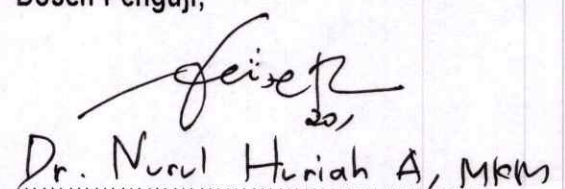 Dosen Penguji,
Dr. Nurul Huriah A, MKM